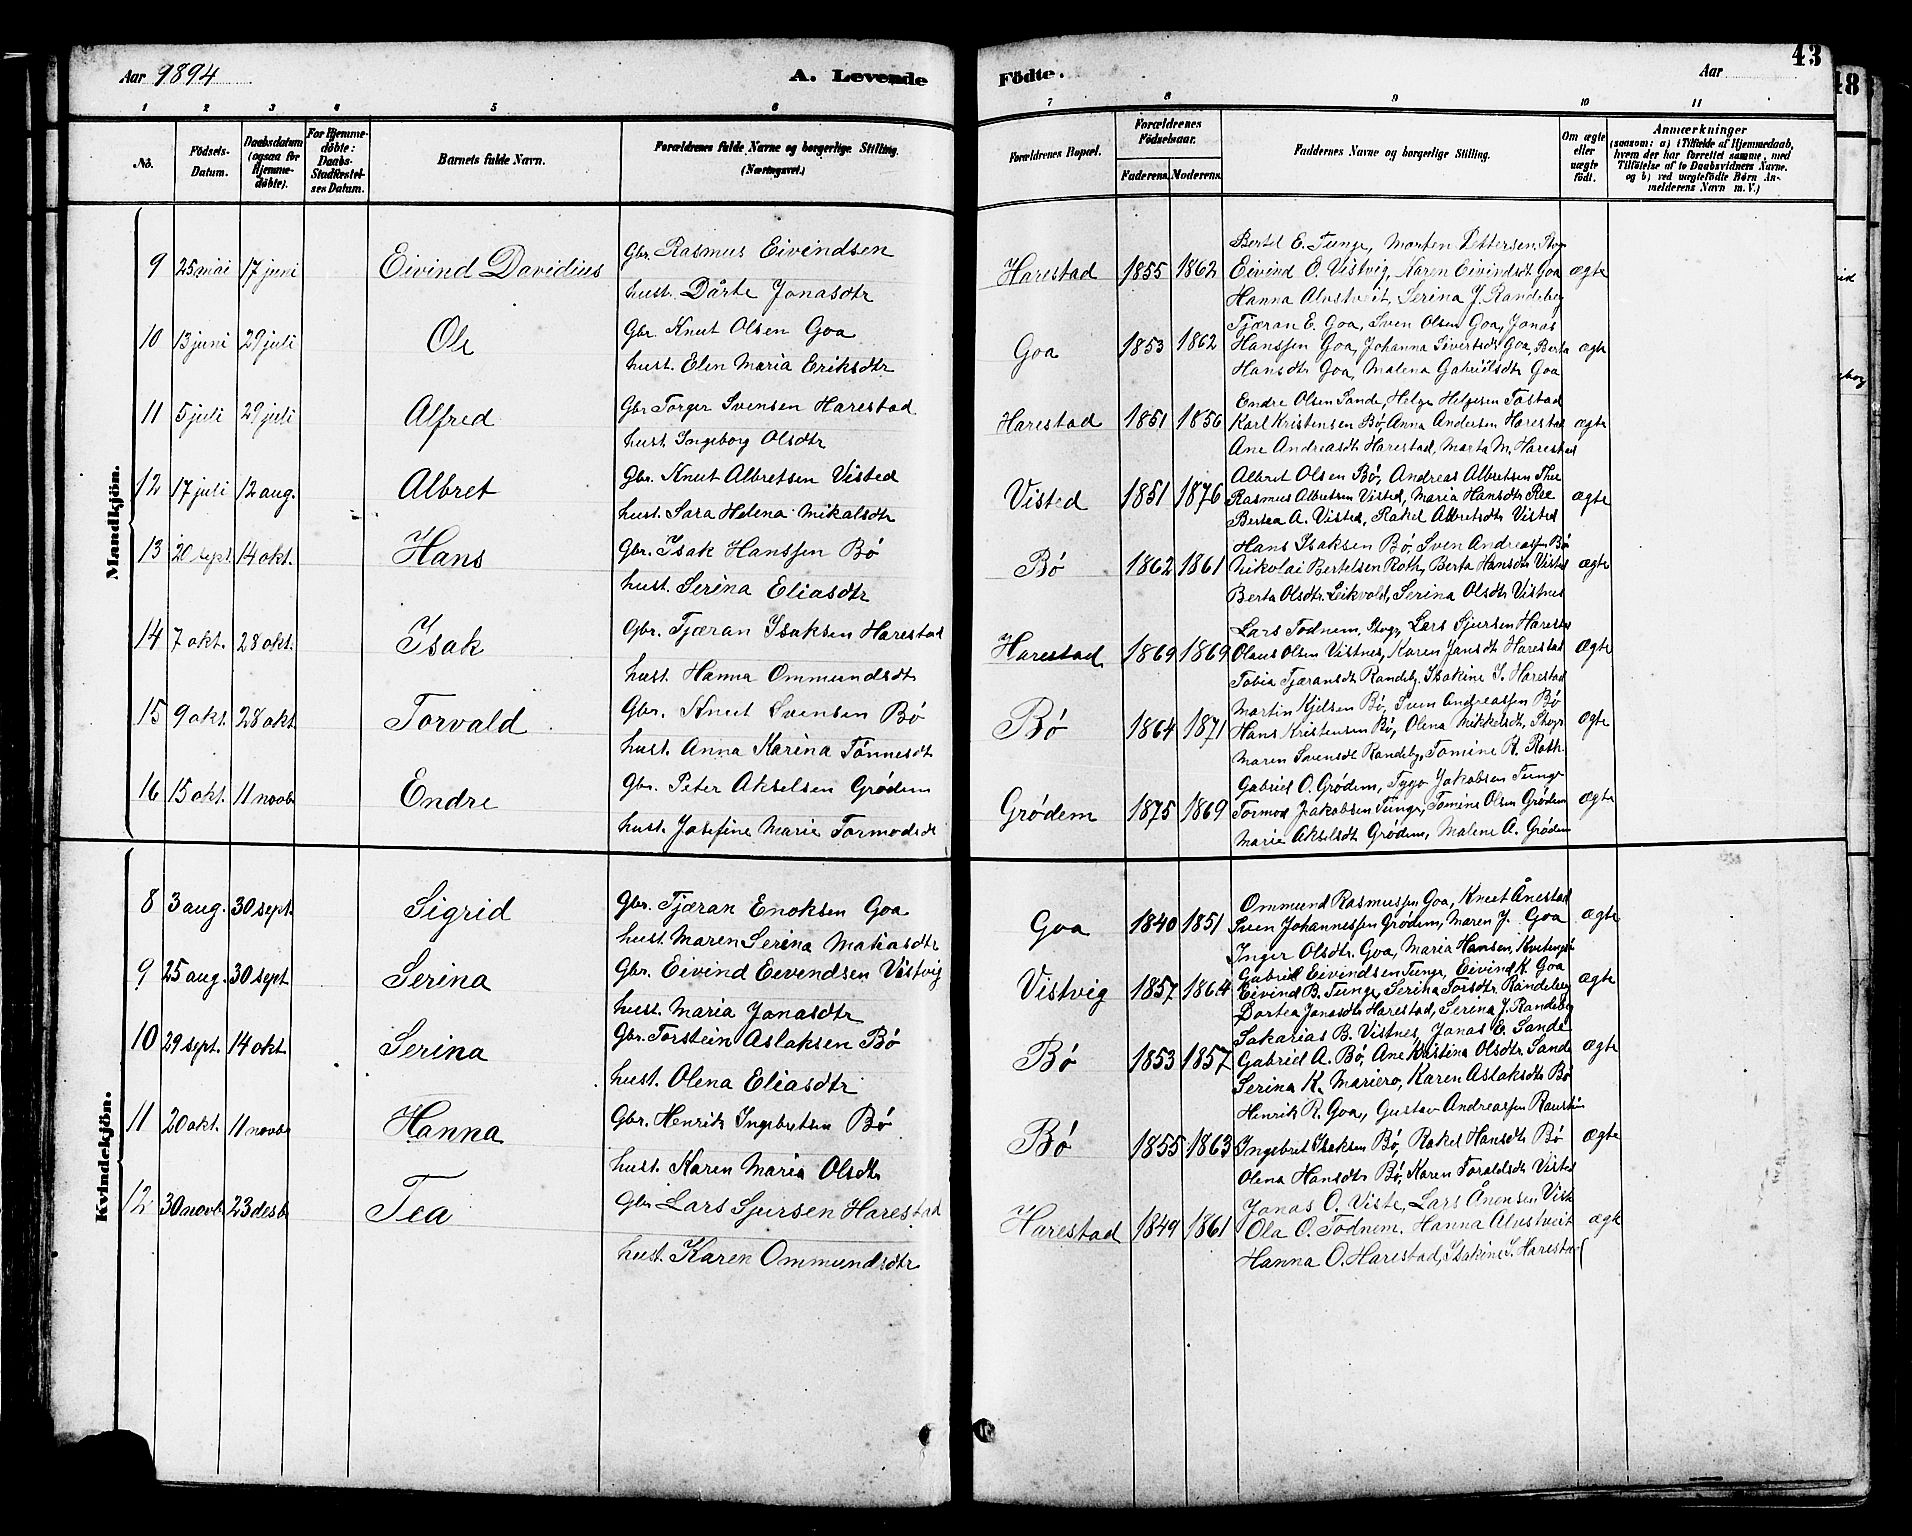 Aar 1894
A. Levende
Födte.
Aar
43
48
1 2 3 4 5 6 7 8 9 10 11
No.
Födsels-Datum.
Daabsdatum (ogsaa for Hjemme-döbte).
For Hjemme-döbte: Daabs-Stadfæstel-ses Datum.
Barnets fulde Navn.
Forældrenes fulde Navne og borgerlige Stilling. (Næringsvei.)
Forældrenes Bopæl.
Forældrenes Födselsaar.
Faderens. Moderens.
Faddernes Navne og borgerlige Stilling.
Om ægte eller uægte födt.
Anmærkninger
(saasom: a) i Tilfælde af Hjemmedaab,
hvem der har forrettet samme, med
Tilföielse af to Daabsvidners Navne,
og b) ved uægtefödte Börn An-
melderens Navn m. V.)
Mandkjön.
9 25 mai 17 juni Eivind Davidius Gbr. Rasmus Eivindsen
hust. Dårte Jonasdtr
Harestad 1855 1862
Bertel E. Tunge, Morten Pettersen
Eivind O. Vistvig, Karen Eivindsdt Goa ægte
Hanna Alvstveit, Serina J. Randeberg
10 13 juni 29 juli Ole Gbr. Knut Olsen Goa
hust. Elen Maria Eriksdtr
Goa 1853 1862
Tjæran E. Goa, Sven Olsen Goa, Jonas
Hanssen Goa, Johanna Sivertsdt Goa, Berta ægte
Hansdt Goa, Malena Gabrielsdt Goa
11 5 juli 29 juli Alfred Gbr Torger Svensen Harestad
hust. Ingeborg Olsdtr
Harestad 1851 1856
Endre Olsen Sande, Helge Helgesen Tastad
Karl Kristensen Bø, Anna Andersen Harestad ægte
Ane Andreasdt Harestad, Marta M. Harestad
12 17 juli 12 aug. Albret Gbr. Knut Albretsen Visted
hust. Sara Helena Mikalsdtr
Visted 1851 1876
Albret Olsen Bø, Andreas Albretsen
Rasmus Albretsen Visted, Maria Hansdtr Ree ægte
Bertea A. Visted, Rakel Albretsdtr Visted
13 20 sept. 14 okt. Hans Gbr. Isak Hanssen Bø
hust. Serina Eliasdtr
Bø 1862 1861
Hans Isaksen Bø, Sven Andreassen Bø
Nikolai Bertelsen Roth, Berta Hansdt Visted ægte
Berta Olsdtr. Leikvold, Serina Olsdtr Vistnes
14 7 okt. 28 okt. Isak Gbr. Tjæran Isaksen Harestad
hust. Hanna Ommundsdt
Harestad 1869 1869
Lars Todnem, Lars Sjursen Harestad
Olaus Olsen Vistnes, Karen Jansdt Harestad ægte
Tobia Tjæransdt Randeb., Isakine S. Harestad
15 9 okt. 28 okt. Torvald Gbr. Knut Svensen Bø
hust. Anna Karina Tønnesdt
Bø 1864 1871
Martin Kjelsen Bø, Sven Andreassen Bø
Hans Kristensen Bø, Olena Mikkelsdt, ægte
Maren Svensdt Randeby, Tomine R. Roth
16 15 okt. 11 novb. Endre Gbr. Peter Akselsen Grødem
hust. Josefine Marie Tormodsdt
Grødem 1875 1869
Gabriel O. Grødem, Tygo Jakobsen Tunge
Tormod Jakobsen Tunge, Tomine Olsen Grødem ægte
Marie Akselsdt Grødem, Malene A. Grødem
Kvindekjön.
8 3 aug. 30 sept. Sigrid Gbr. Tjæran Enoksen Goa
hust. Maren Serina Matiasdtr
Goa 1840 1851
Ommund Rasmussen Goa, Knut Ånestad
Sven Johannessen Grødem, Maren J. Goa ægte
Inger Olsdtr. Goa, Maria Hansen,
9 25 aug. 30 sept Serina Gbr. Eivind Eivendsen Vistvig
hust. Maria Jonasdtr
Vistvig 1857 1864
Gabriel Eivindsen Tunge, Eivind K. Goa
Eivind B. Tunge, Serina Torsdtr Randeberg ægte
Dortea Jonasdt Harestad, Serina J. Randeberg
10 29 sept. 14 okt. Serina Gbr. Torstein Aslaksen Bø
hust. Olena Eliasdtr
Bø 1853 1857
Sakarias B. Vistnes, Jonas E. Sande
Gabriel A. Bø, Ane Kristina Olsdtr. Sande ægte
Serina K. Mariero, Karen Aslaksdt Bø
11 20 okt. 11 novbr Hanna Gbr. Henrik Ingebretsen Bø
hust. Karen Maria Olsdtr
Bø 1855 1863
Henrik R. Goa, Gustav Andreassen
Ingebret Isaksen Bø, Rakel Hansdtr Bø ægte
Olena Hansdtr Bø, Karen Toraldsdt Visted
12 30 novb. 23 desb. Tea Gbr Lars Sjursen Harestad
hust. Karen Ommundsdtr
Harestad 1849 1861
Jonas O. Viste, Lars Ånensen Viste
Ola O. Todnem. Hanna Alvstveit ægte
Hanna O. Harestad, Isakine S. Harestad